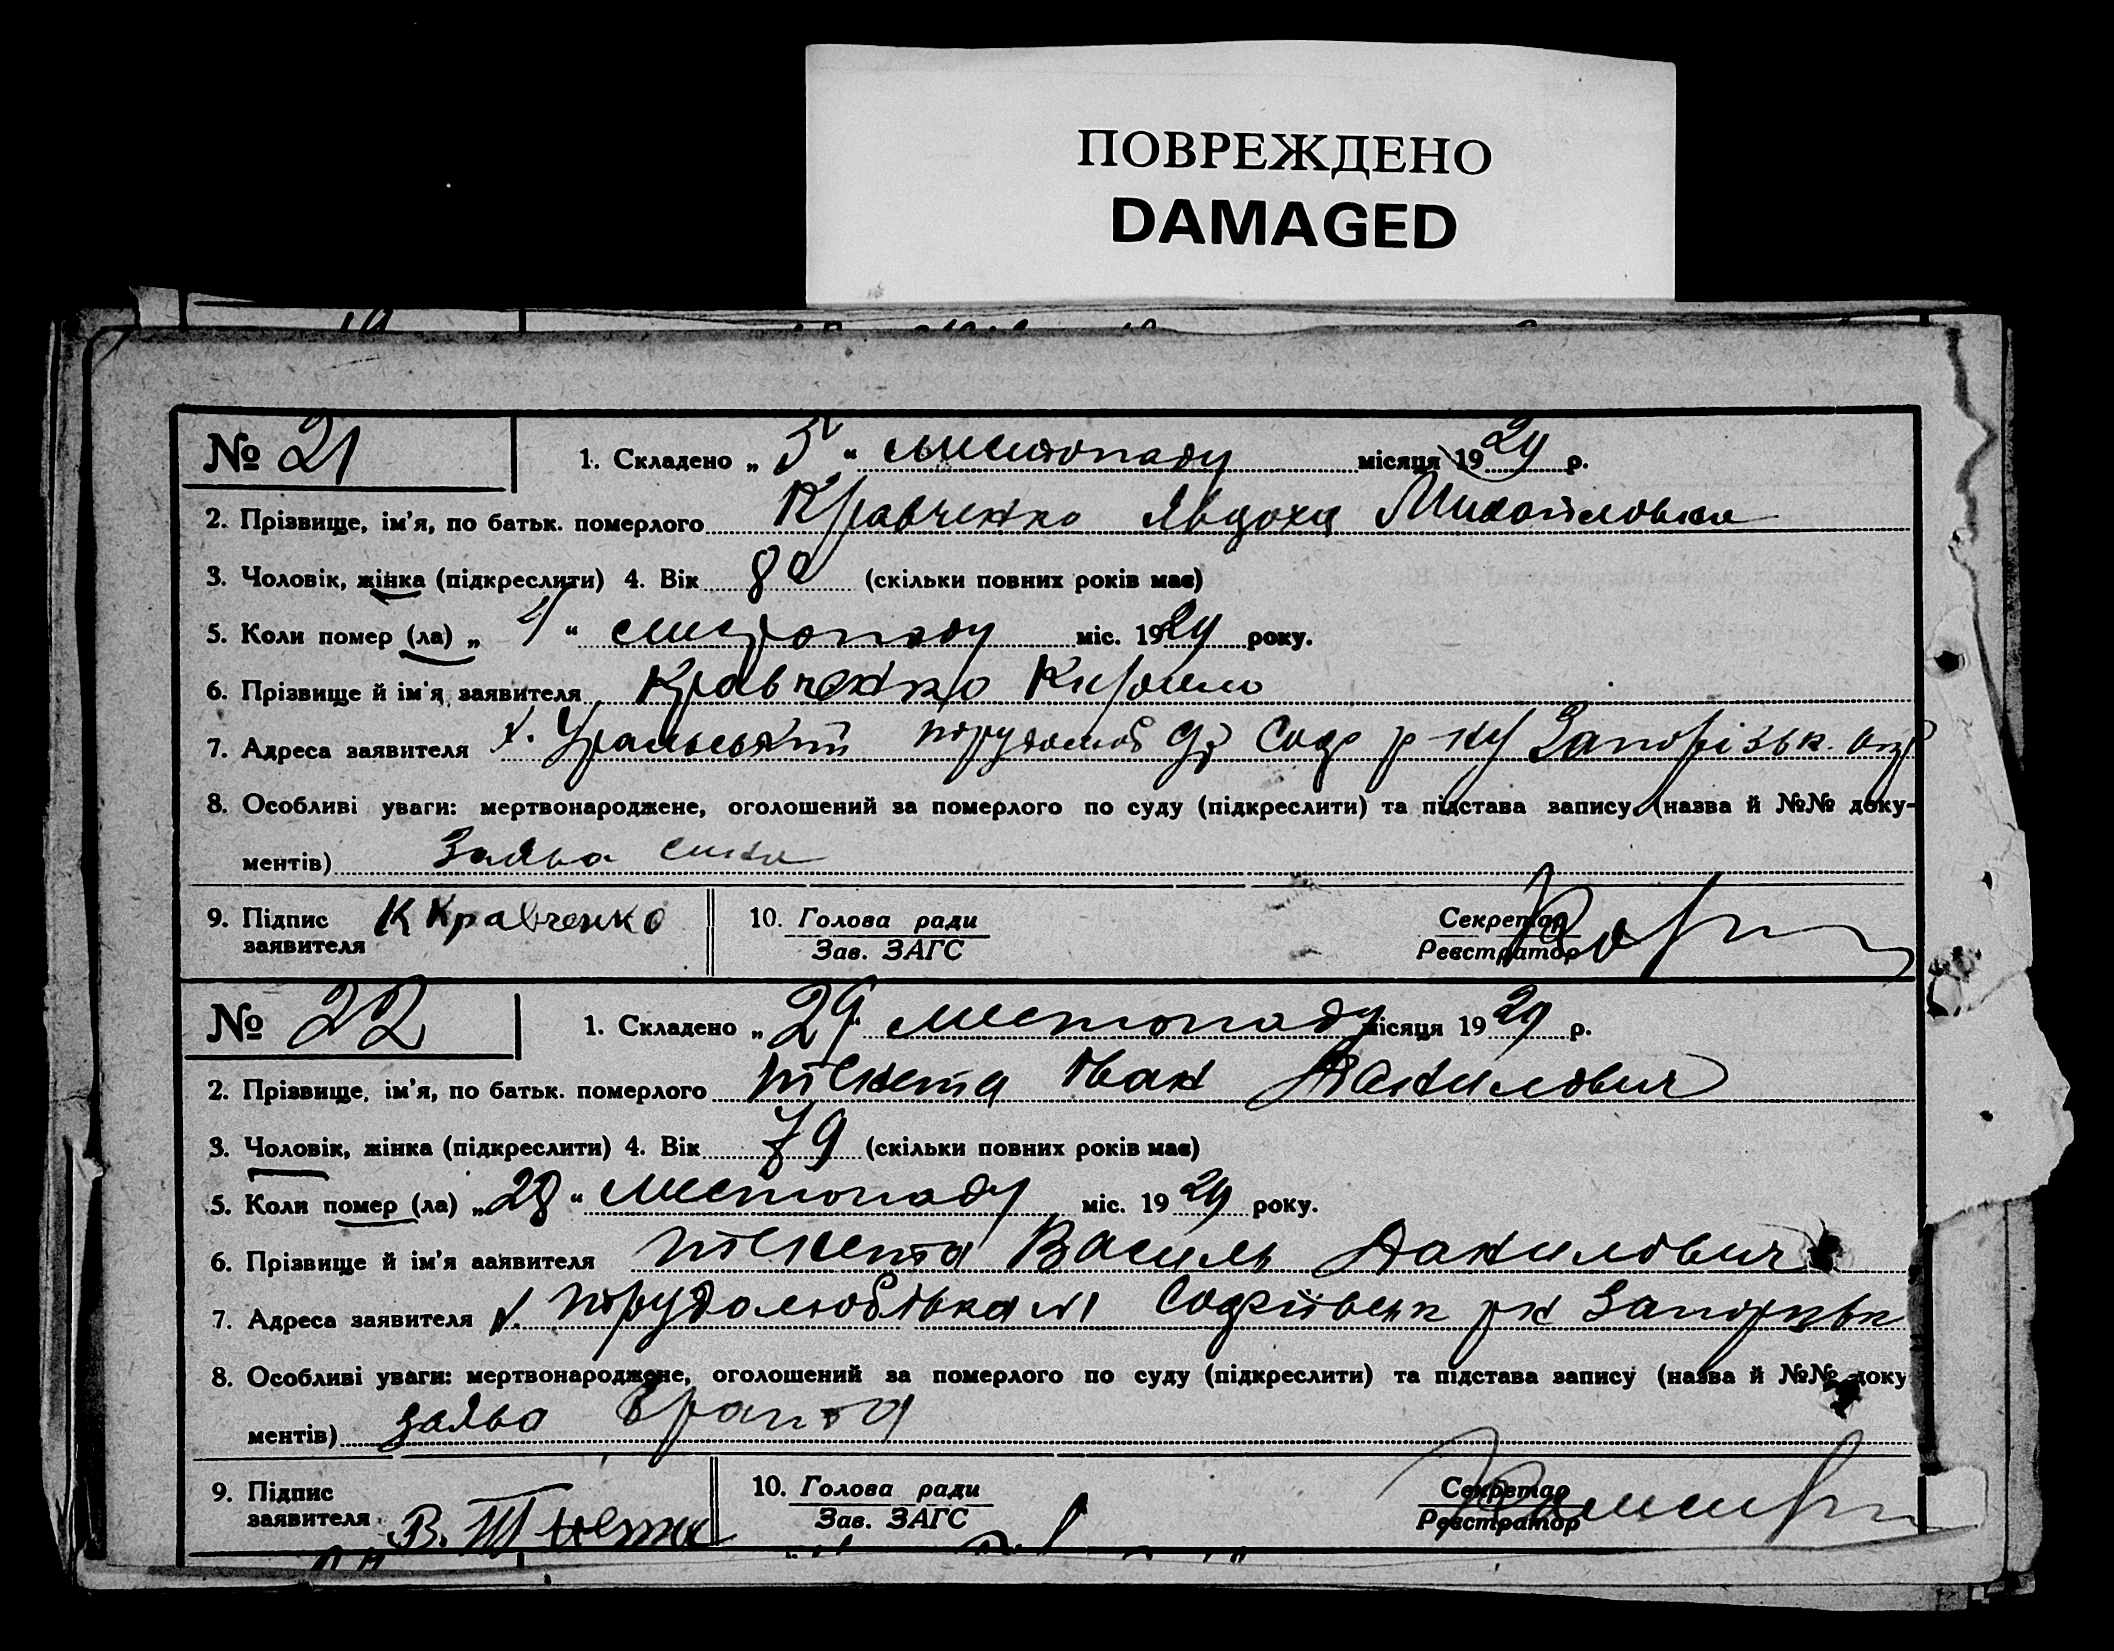 ПОВРЕЖДЕНО
DAMAGED
№ 21
1. Складено „ 5 “ листопаду місяця 1929 р.
2. Прізвище, ім'я, по батьк. померлого Кравченко Явдоха Михайловна
3. Чоловік, жінка (підкреслити) 4. Вік 80 (скільки повних років має)
5. Коли помер (ла) „ 4 “ листопаду міс. 1929 року.
6. Прізвище й ім'я заявителя Кравченко Кирило
7. Адреса заявителя х. Уральський р-ну Запорізьк. окр
8. Особливі уваги: мертвонароджене, оголошений за померлого по суду (підкреслити) та підстава запису (назва й №№ доку-
ментів) Заява сина
9. Підпис заявителя К Кравченко
10. Голова ради
Зав. ЗАГС
Секретар
Реєстратор
№ 22
1. Складено „ 29 “ листопаду місяця 1929 р.
2. Прізвище, ім'я, по батьк. померлого Іван Данилович
3. Чоловік, жінка (підкреслити) 4. Вік 79 (скільки повних років має)
5. Коли помер (ла) „ 28 “ листопаду міс. 1929 року.
6. Прізвище й ім'я заявителя Василь Данилович
7. Адреса заявителя х. Трудолюбівка №1 Софіївськ рн Запорізьк
8. Особливі уваги: мертвонароджене, оголошений за померлого по суду (підкреслити) та підстава запису (назва й №№ доку
ментів) заява брата
9. Підпис заявителя В.
10. Голова ради
Зав. ЗАГС
Секретар
Реєстратор